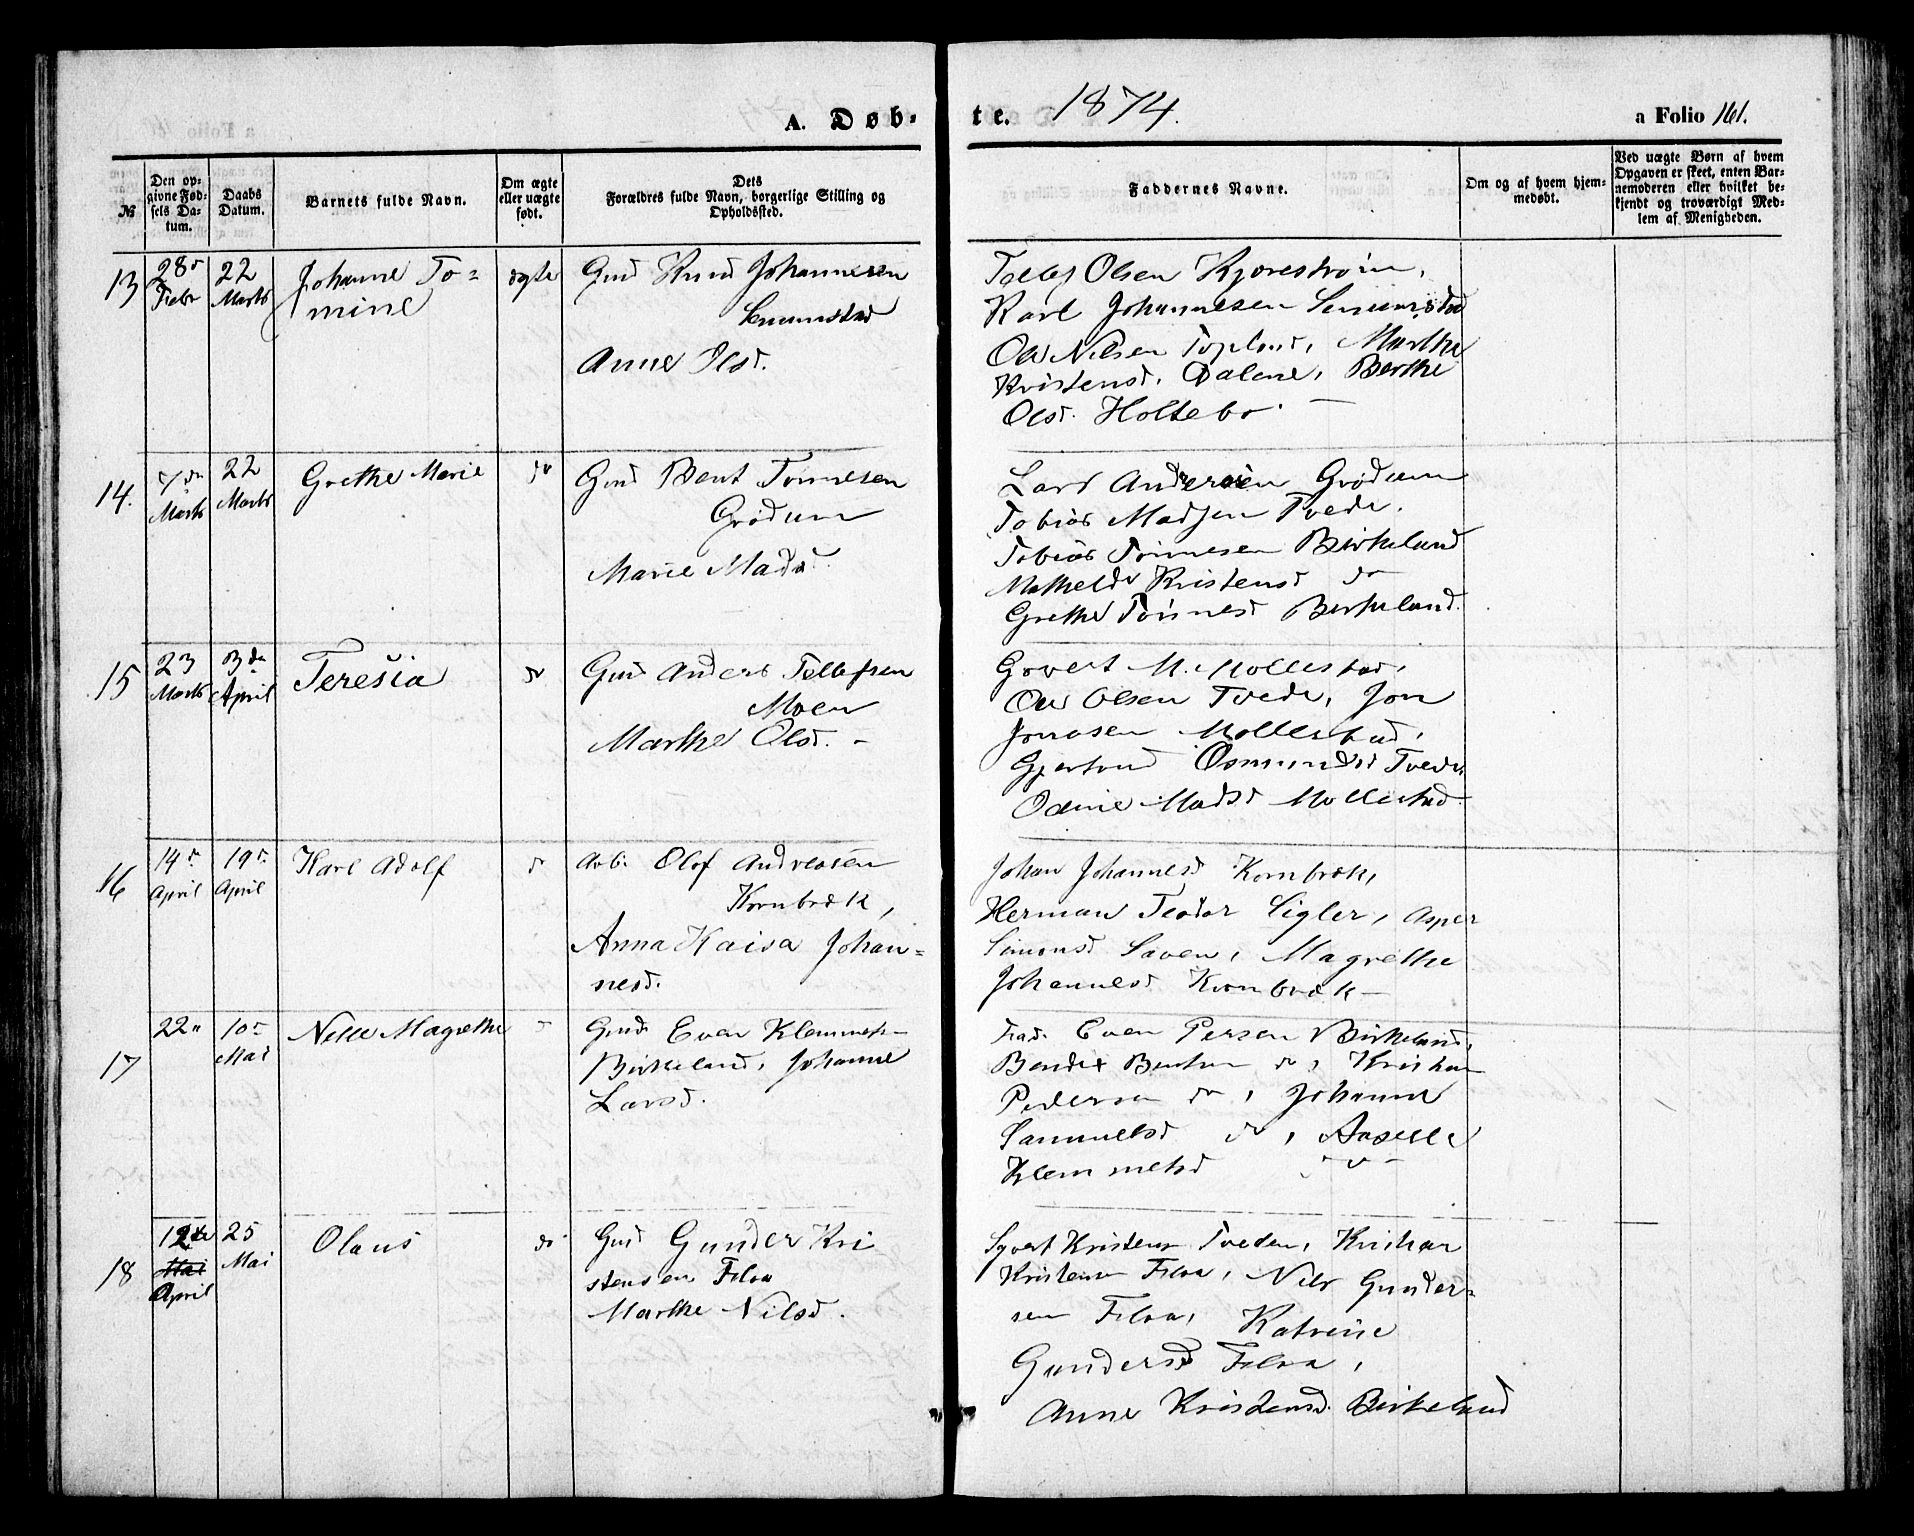 A. Døb-
te. 1874. a Folio 161.
№ Den opgivne Fødsels Datum. Daabs Datum. Barnets fulde Navn. Om ægte eller uægte født. Dets Forældres fulde Navn, borgerlige Stilling og Opholdssted.
Faddernes Navne. Om og af hvem hjemmedøbt. Ved uægte Børn af hvem Opgaven er skeet, enten Barnemoderen eller hvilket bekjendt og troværdigt Medlem af Menigheden.
13 28 Febr 22 Marts Johanne To=
mine
ægte Gmd Knud Johannesen
Senumstad
Anne Olsd.
Tellef Olsen Kjørestrøm,
Karl Johannesen Senumstad
Ole Nilsen Topland, Marthe
Kristensd. Dalene, Berthe
Olsd. Holtebo
14. 7de Marts 22 Marts Grethe Marie do Gmd Bent Tønnesen
Grødum
Marie Madsd.
Lars Andersen Grødum
Tobias Madsen Tvede.
Tobias Tønnesen Birkeland
Mathelde Kristensd do
Grethe Tønnesd Birkeland.
15 23 Marts 3de April Teresia do Gmd Anders Tellefsen
Moen
Marthe Olsd.
Govert M. Mollestad,
Ole Olsen Tvede, Jon
Jonasen Mollestad,
Gjertrud Osmundsd Tvede
Odine Madsd Mollestad
16 14de April 19de April Karl Adolf do Arb. Olof Andreasen
Kornbræk,
Anna Kaisa Johan=
nesd.
Johan Johannesd Kornbræk,
Herman Teodor Sigler, Asper
Simonsd Saven, Magrethe
Johannesd Kornbræk
17 22 10de Mai Nelle Magrethe do Gmd Even Klemmets
Birkeland, Johanne
Larsd.
Fad. Even Persen Birkeland,
Bendix Bentsen do, Kristian
Pedersen do, Johanne
Sammuelsd do, Aaselle
Klemmetsd do
18 12te Mai April 25 Mai Olaus do Gmd Gunder Kri
stensen Flaa
Marthe Nilsd.
Syvert Kristens Tveden, Kristian
Kristensen Flaa, Nils Gunder=
sen Flaa, Katrine
Gundersd Flaa,
Anne Kristensd. Birkeland